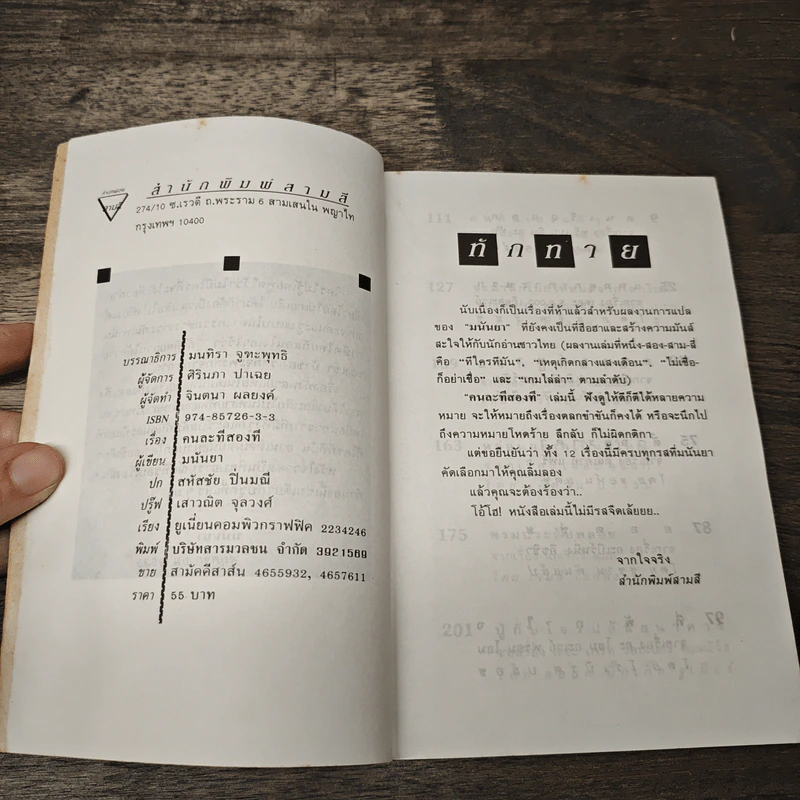 สำนักพิมพ์สามสี
274/10 ซ.เรวดี ถ.พระราม 6 สามเสนใน พญาไท
กรุงเทพฯ 10400
บรรณาธิการ มนทิรา จูฑะพุทธิ
ผู้จัดการ ศิรินภา ปาเฉย
ผู้จัดทำ จินตนา ผลยงค์
ISBN 974-85726-3-3
เรื่อง คนละทีสองที
ผู้เขียน มนันยา
ปก สหัสชัย ปิ่นมณี
ปรู๊ฟ เสาวณิต จุลวงศ์
เรียง ยูเนี่ยนคอมพิวกราฟฟิค 2234246
พิมพ์ บริษัทสารมวลชน จำกัด 3921569
ขาย สามัคคีสาส์น 4655932, 4657611
ราคา 55 บาท
ทักทาย
นับเนื่องก็เป็นเรื่องที่ห้าแล้วสำหรับผลงานการแปล
ของ "มนันยา" ที่ยังคงเป็นที่ฮือฮาและสร้างความมันส์
สะใจให้กับนักอ่านชาวไทย (ผลงานเล่มที่หนึ่ง-สอง-สาม-สี่
คือ "ทีใครทีมัน", "เหตุเกิดกลางแสงเดือน", "ไม่เชื่อ-
ก็อย่าเชื่อ" และ "เกมไล่ล่า" ตามลำดับ)
"คนละทีสองที" เล่มนี้ ฟังดูให้ดีก็ดีได้หลายความ
หมาย จะให้หมายถึงเรื่องตลกขำขันก็คงได้ หรือจะนึกไป
ถึงความหมายโหดร้าย ลึกลับ ก็ไม่ผิดกติกา
แต่ขอยืนยันว่า ทั้ง 12 เรื่องนี้มีครบทุกรสที่มนันยา
คัดเลือกมาให้คุณลิ้มลอง
แล้วคุณจะต้องร้องว่า..
โอ้โฮ! หนังสือเล่มนี้ไม่มีรสจืดเล้ยยย..
จากใจจริง
สำนักพิมพ์สามสี